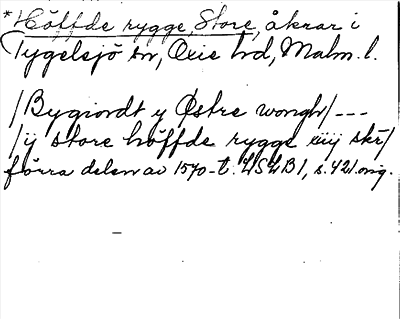 *Höffde rygge, Store, åkrar i
Tygelsjö sn, Oxie hd, Malm. l.
/Bygiordt y Østre wongh/---
/ij store höffde rygge iiij skr/
förra delen av 1570-t. LSLB1, s. 421. orig.